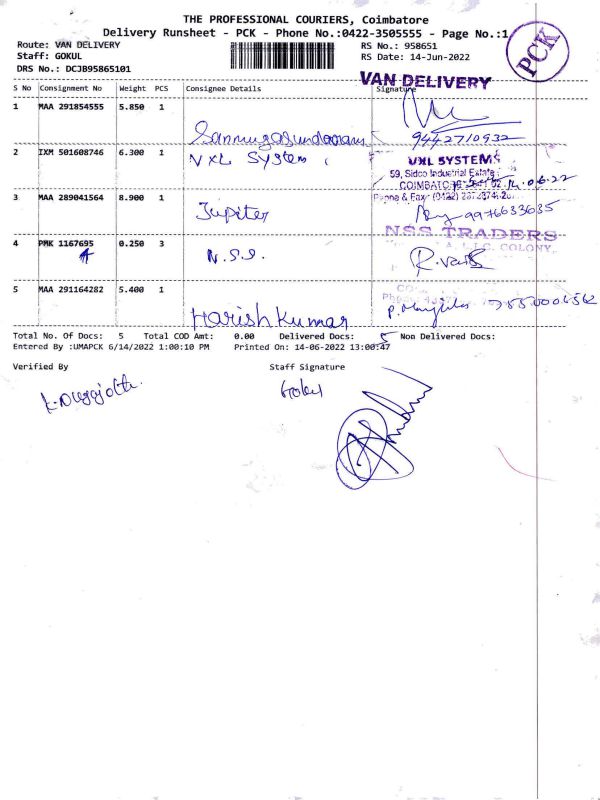 THE PROFESSIONAL COURIERS, Coimbatore
Delivery Runsheet - PCK - Phone No.:0422-3505555 - Page No.:1
Route: VAN DELIVERY RS No.: 958651
Staff: GOKUL RS Date: 14-Jun-2022
DRS No.: DCJB95865101
PCK
VAN DELIVERY
S No Consignment No Weight PCS Consignee Details Signature
1 MAA 291854555 5.850 1
9442710932
2 IXM 501608746 6.300 1 VXL System
VXL SYSTEMS
59, Sidco Industrial Estate
COIMBATORE
14.06.22
3 MAA 289041564 8.900 1 Jupiter
9976633035
NSS TRADERS
COLONY
4 PMK 1167695 0.250 3 N.S.S.
5 MAA 291164282 5.400 1 Harish Kumar
Total No. Of Docs: 5 Total COD Amt: 0.00 Delivered Docs: 5 Non Delivered Docs:
Entered By :UMAPCK 6/14/2022 1:00:10 PM Printed On: 14-06-2022 13:00:47
Verified By Staff Signature
Gokul